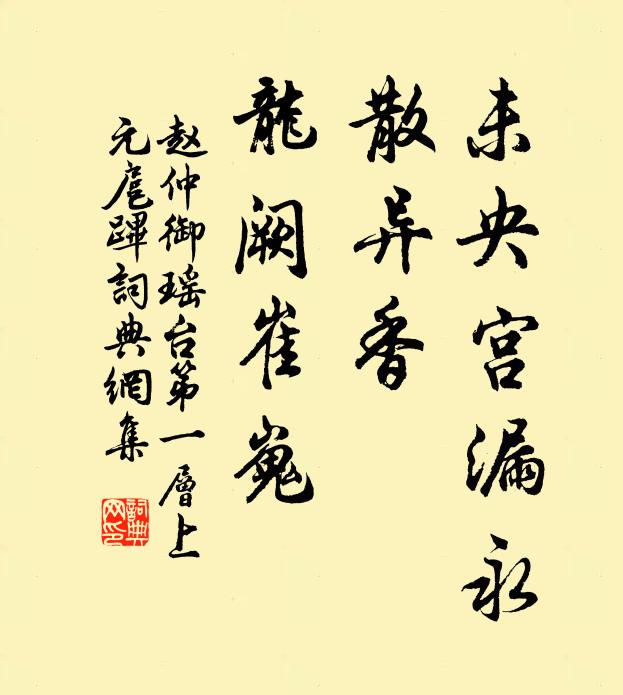 未央宫漏永
散异香
龍阙崔嵬
赵仲御瑶台第一層上
元扈蹕詞典網集
詞典网印